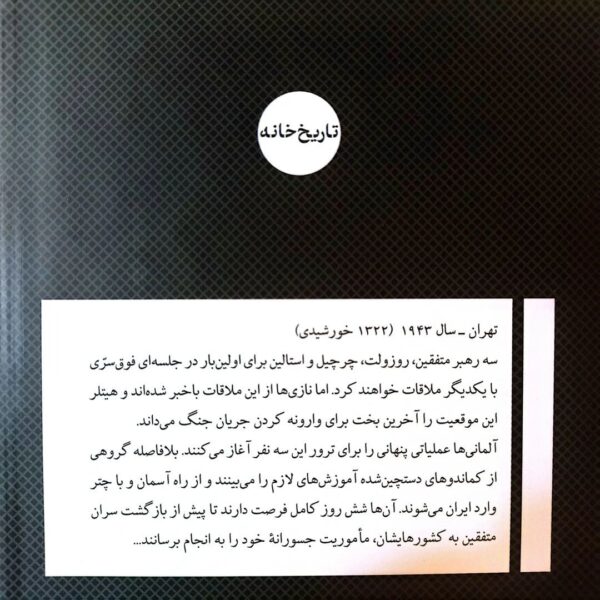 تاریخ‌خانه
تهران ـ سال ۱۹۴۳ (۱۳۲۲ خورشیدی)
سه رهبر متفقین، روزولت، چرچیل و استالین برای اولین‌بار در جلسه‌ای فوق‌سرّی
با یکدیگر ملاقات خواهند کرد. اما نازی‌ها از این ملاقات باخبر شده‌اند و هیتلر
این موقعیت را آخرین بخت برای وارونه کردن جریان جنگ می‌داند.
آلمانی‌ها عملیاتی پنهانی را برای ترور این سه نفر آغاز می‌کنند. بلافاصله گروهی
از کماندوهای دستچین‌شده آموزش‌های لازم را می‌بینند و از راه آسمان و با چتر
وارد ایران می‌شوند. آن‌ها شش روز کامل فرصت دارند تا پیش از بازگشت سران
متفقین به کشورهایشان، مأموریت جسورانهٔ خود را به انجام برسانند...